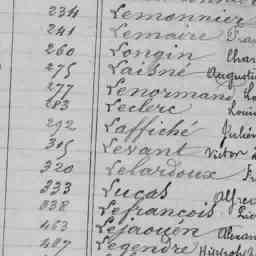 234 Lemonnier
241 Lemaire Fra
260 Longin Char
275 Laisné Augusti
277 Lenormand Lo
283 Leclerc Loui
292 Laffiché
315 Levant Victor
320 Lelardoux Fr
333 Lucas Alfre
338 Lefrançois
463 Lejaouen Alexan
487 Legendre